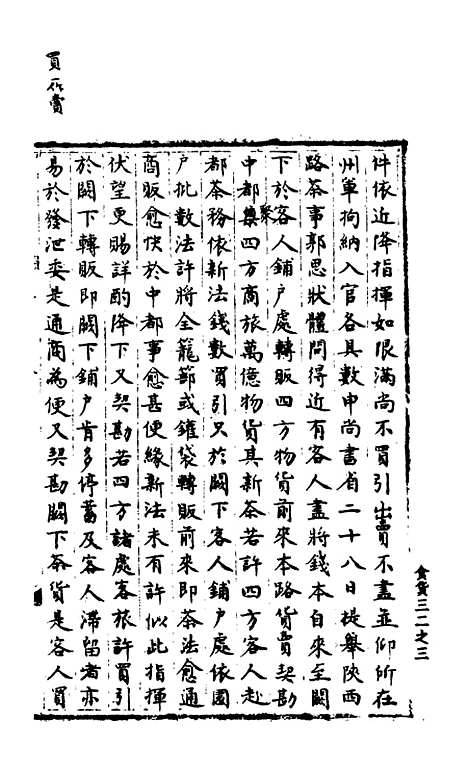 食貨三二之三
件依近降指揮如限滿尚不買引出賣不盡並仰所在
州軍拘納入官各具數申尚書省二十八日提舉陝西
路茶事郭思狀體問得近有客人盡將錢本自來至闕
下於客人鋪户處轉販四方物貨前來本路貨賣契勘
中都聚集四方商旅萬億物貨其新茶若許四方客人赴
都茶務依新法錢數買引只於闕下客人鋪户處依園
户批數法許將全籠篰或鏟袋轉販前來即茶法愈通
商販愈快於中都事愈甚便緣新法未有許似此指揮
伏望更賜詳酌降下又契勘若四方諸處客旅許買引
於闕下轉販即闕下鋪户肯多停蓄及客人滯留者亦
易於發泄委是通商為便又契勘闕下茶貨是客人買
買一作賣